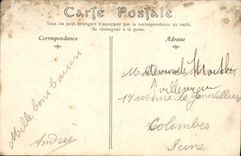 Carte Postale
Tous les pays étrangers n'acceptent pas la correspondance au recto.
Se renseigner à la poste.
Correspondance
Adresse
Mille bons baisers
Andrée
Mademoiselle
17 avenue de
Colombes
Seine